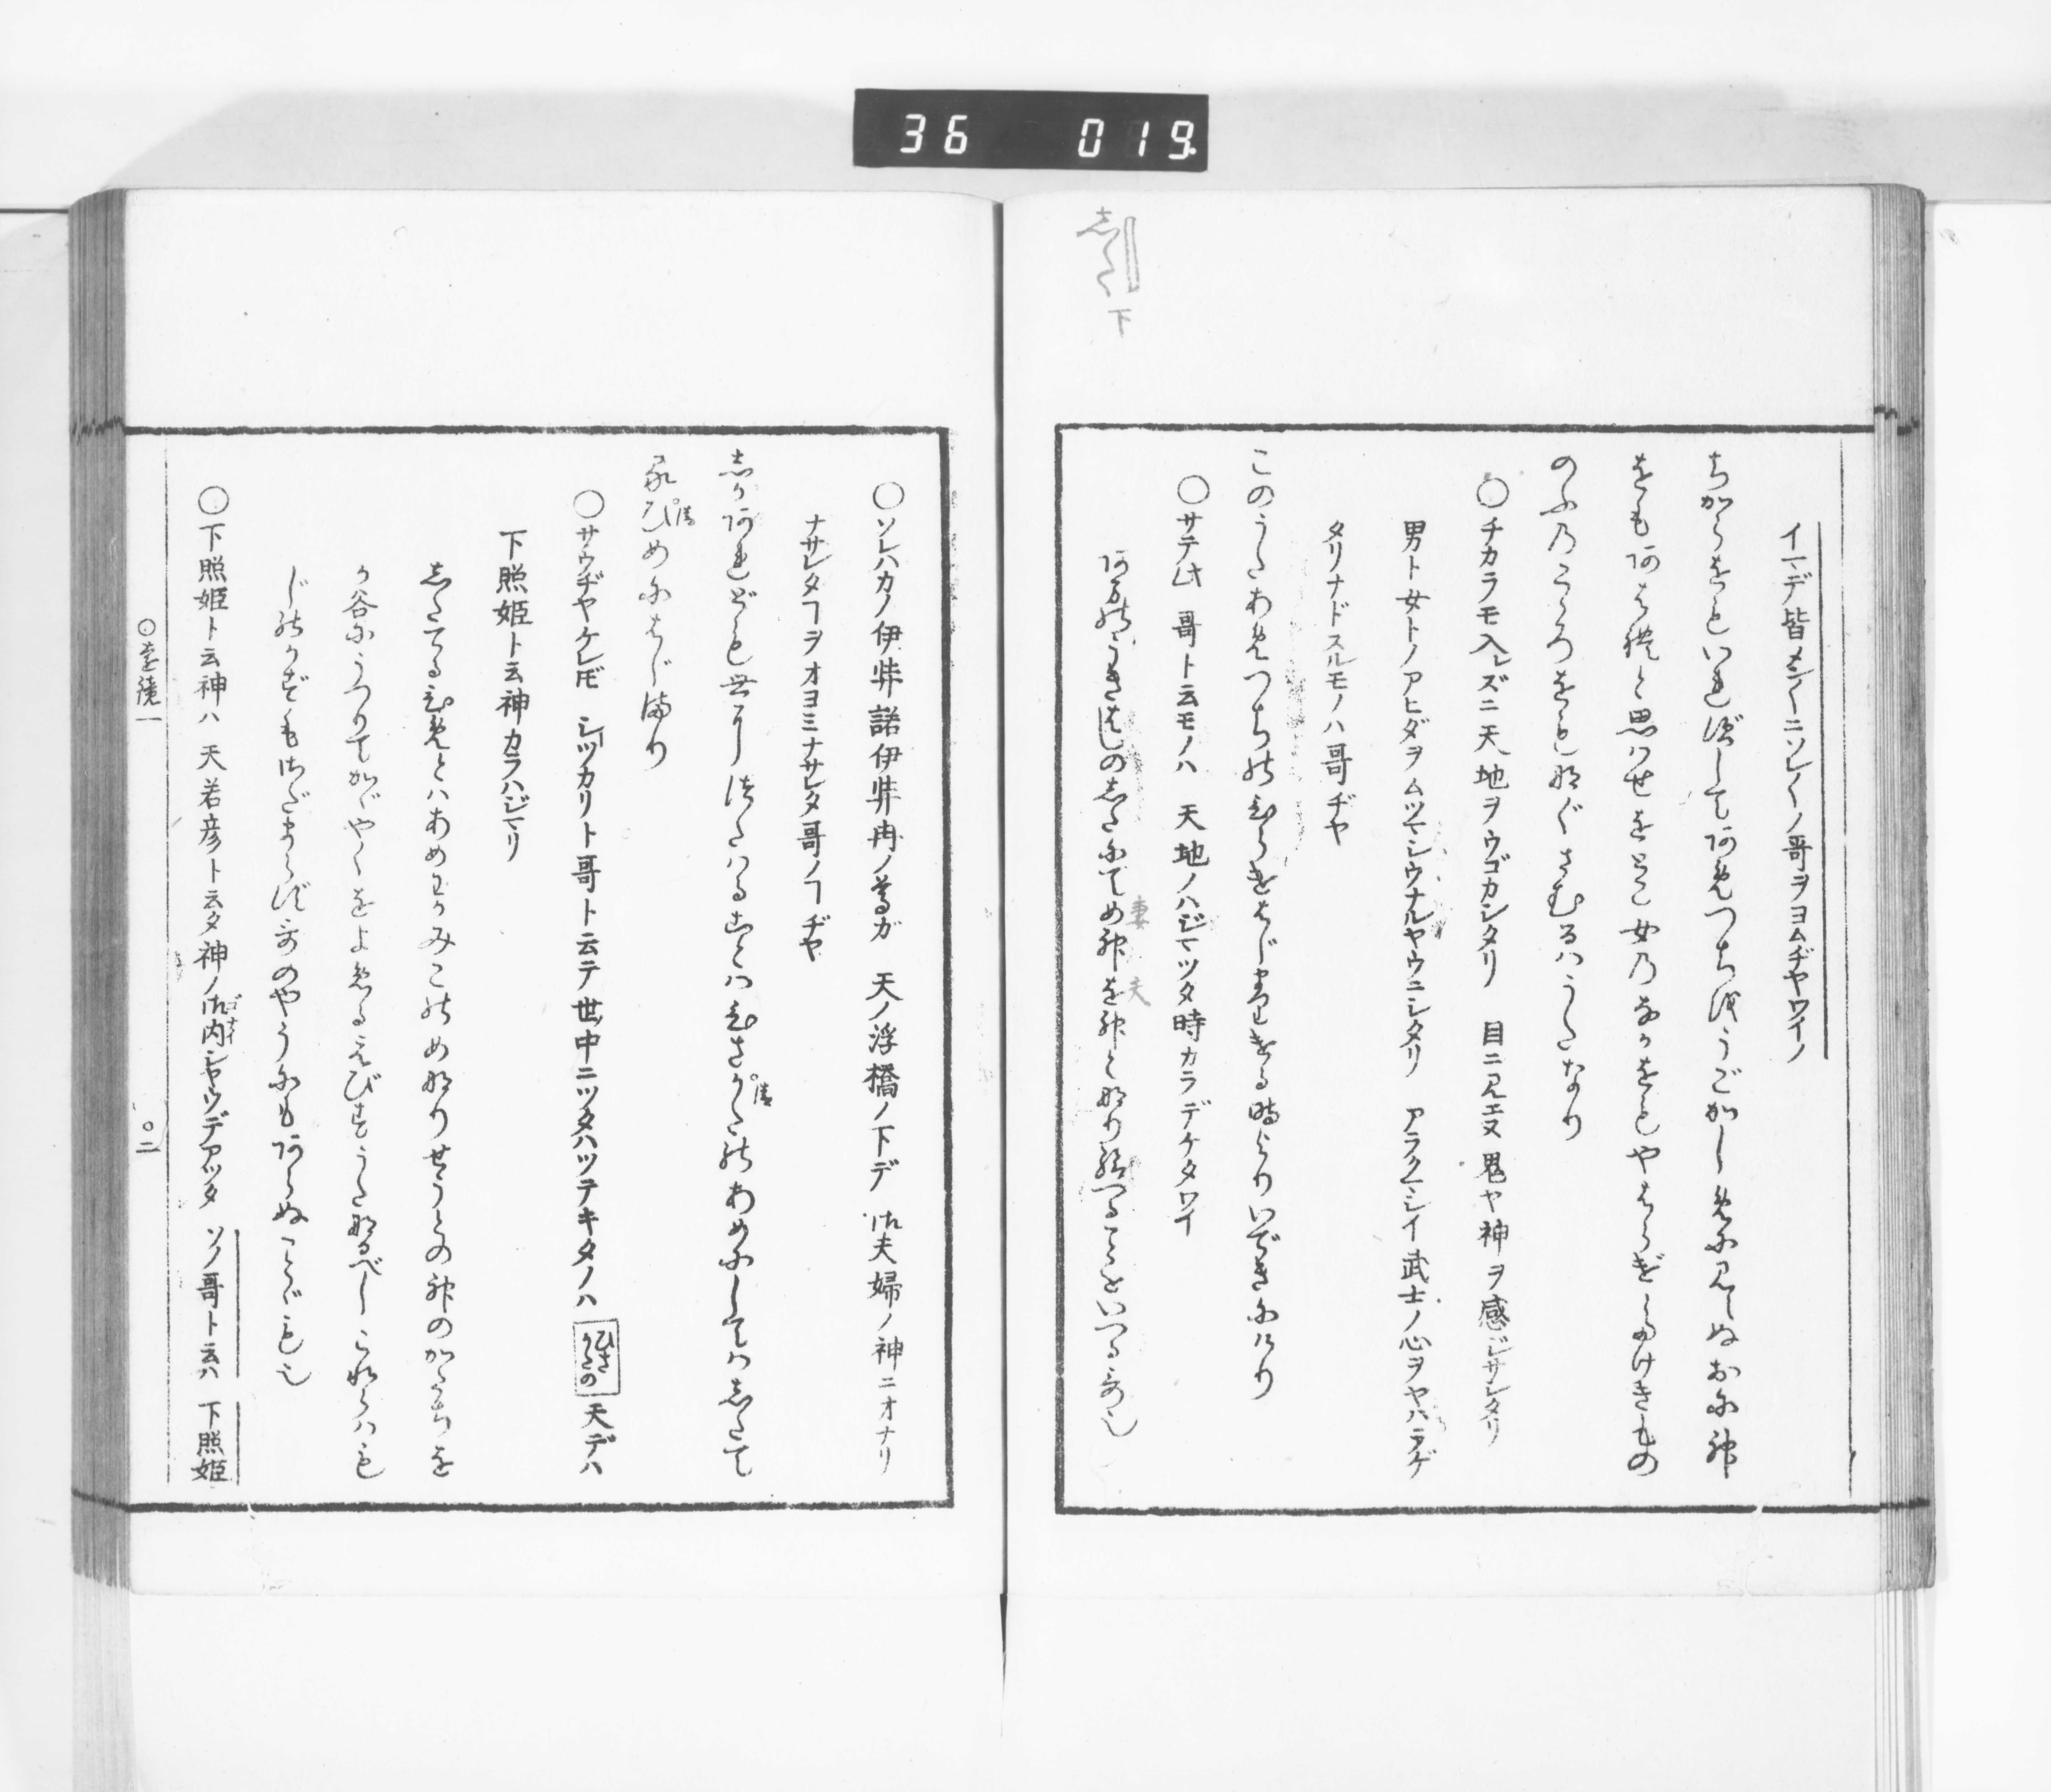 36 019.
下
イマデ皆メン〳〵ニソレ〳〵ノ哥ヲヨムヂヤワイノ
ちからをもいれずしてあめつちをうごかしめに見えぬおに神
をもあはれと思はせをとこ女のなかをもやはらげたけきものゝ
のふのこゝろをもなぐさむるはうたなり
○チカラモ入レズニ天地ヲウゴカシタリ 目ニ見エヌ鬼ヤ神ヲ感ジサシタリ
男ト女トノアヒダヲムツマシウナルヤウニシタリ アラクマシイ武士ノ心ヲヤハラゲ
タリナドスルモノハ哥ヂヤ
このうたあめつちのひらけはじまりける時よりいできにけり
○サテ此哥ト云モノハ 天地ノハジマツタ時カラデケタワイ
あまのうきはしのしたにてめ神を神となり給へることをいへる哥也
妻 夫
○ソレハカノ伊弉諾伊弉冉ノ尊ガ 天ノ浮橋ノ下デ 御夫婦ノ神ニオナリ
ナサレタヿヲオヨミナサレタ哥ノヿヂヤ
しかあれども世につたはることはひさかたのあめにしてはしたて
るひめにはじまり
○サウヂヤケレドモ シツカリト哥ト云テ世ノ中ニツタハツテキタノハ ひさかたの 天デハ
下照姫ト云神カラハジマリ
したてるひめとはあめわかみこのめなりせうとの神のかたちを
か谷にうつりてかゞやくをよめるえびすうたなるべしこれらはも
じのかずもさだまらず哥のやうにもあらぬことゞも也
○下照姫ト云神ハ 天若彦ト云タ神ノ御内シヤウデアツタ ソノ哥ト云ハ 下照姫
○遠鏡一
○二